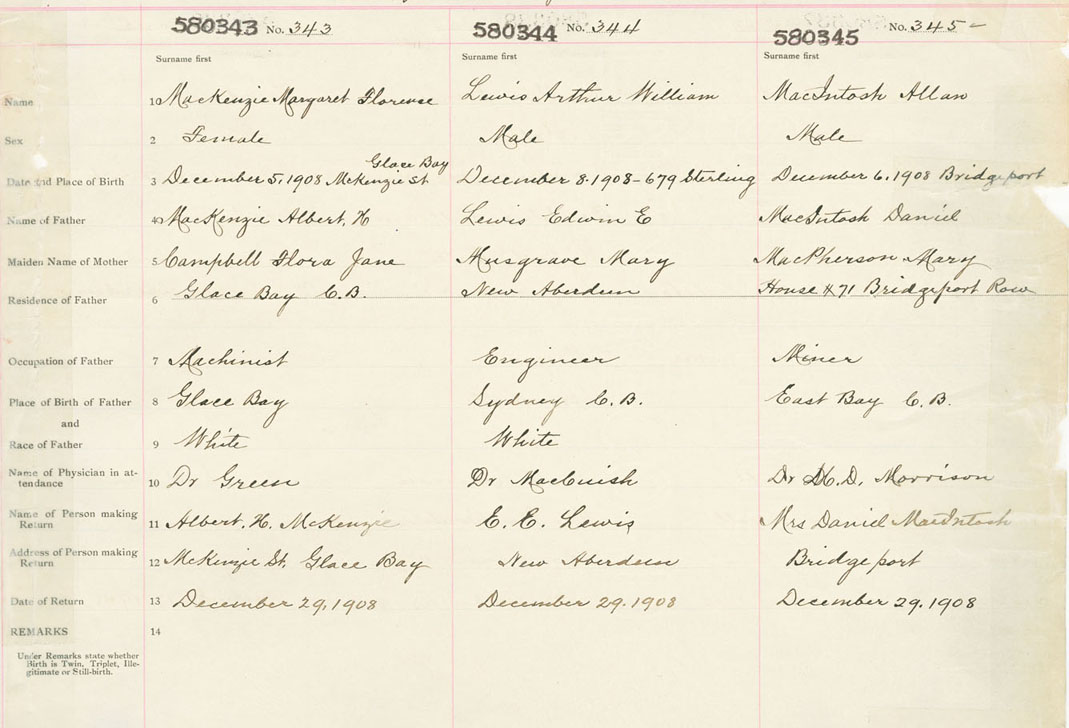 580343 No. 343 580344 No. 344 580345 No. 345
Surname first Surname first Surname first
Name 1 MacKenzie Margaret Florense Lewis Arthur William MacIntosh Allan
Sex 2 Female Male Male
Glace Bay
Date and Place of Birth 3 December 5, 1908 McKenzie St December 8. 1908 - 679 Sterling December 6, 1908 Bridgeport
Name of Father 4 MacKenzie Albert. H Lewis Edwin E MacIntosh Daniel
Maiden Name of Mother 5 Campbell Flora Jane Musgrave Mary MacPherson Mary
Residence of Father 6 Glace Bay C.B. New Aberdeen House #71 Bridgeport Row
Occupation of Father 7 Machinist Engineer Miner
Place of Birth of Father 8 Glace Bay Sydney C.B. East Bay C.B.
and
Race of Father 9 White White
Name of Physician in at-
tendance 10 Dr Green Dr MacCuish Dr H.D. Morrison
Name of Person making
Return 11 Albert. H. McKenzie E. E. Lewis Mrs Daniel MacIntosh
Address of Person making
Return 12 McKenzie St. Glace Bay New Aberdeen Bridgeport
Date of Return 13 December 29, 1908 December 29. 1908 December 29. 1908
REMARKS 14
Under Remarks state whether
Birth is Twin, Triplet, Ille-
gitimate or Still-birth.